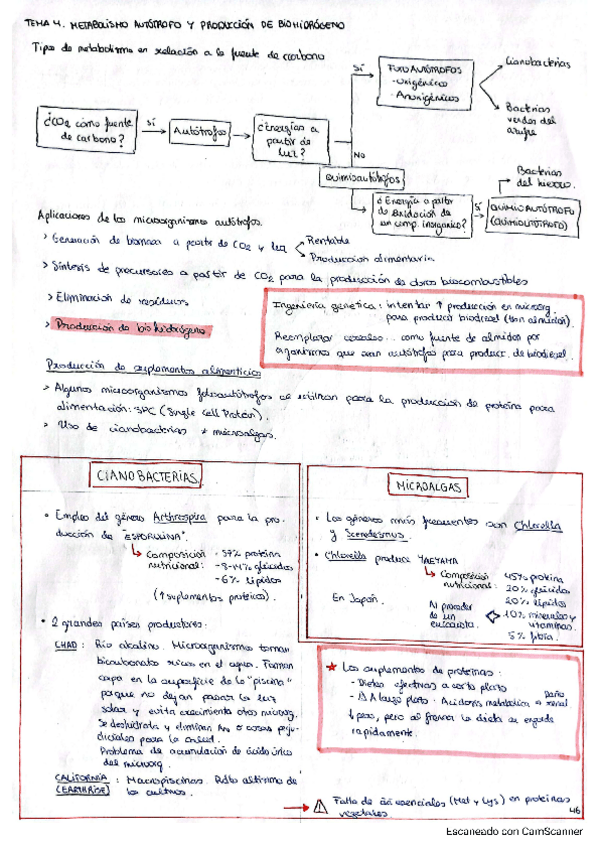 TEMA 4. METABOLISMO AUTÓTROFO Y PRODUCCIÓN DE BIOHIDRÓGENO
Tipos de metabolismo en relación a la fuente de carbono
¿CO2 como fuente de carbono?
SÍ
Autótrofos
¿Energías a partir de luz?
SÍ
FOTOAUTÓTROFOS
- Oxigénicos
- Anoxigénicos
Cianobacterias
Bacterias verdes del azufre
NO
Quimioautótrofos
¿Energía a partir de oxidación de un comp. inorgánico?
SÍ
QUIMIOAUTÓTROFO
(QUIMIOLITÓTROFO)
Bacterias del hierro.
Aplicaciones de los microorganismos autótrofos.
> Generación de biomasa a partir de CO2 y luz
Rentable
Producción alimentaria.
> Síntesis de precursores a partir de CO2 para la producción de otros biocombustibles
> Eliminación de residuos
> Producción de biohidrógeno
Ingeniería genética: intentar ↑ producción en microorg.
para producir biodiesel (son almidón).
Reemplazar cereales... como fuente de almidos por
organismos que sean autótrofos para product. de biodiesel.
Producción de suplementos alimenticios
> Algunos microorganismos fotoautótrofos se utilizan para la produccion de proteína para
alimentación: SPC (Single Cell Protein).
> Uso de cianobacterias + microalgas.
CIANOBACTERIAS
• Empleo del género Arthrospira para la pro-
ducción de "ESPIRULINA".
Composición nutricional:
- 57% proteína
- 8-14% glúcidos
- 6% lípidos
(↑ suplementos proteicos).
• 2 grandes países productores:
CHAD: Río alcalino. Microorganismos toman
bicarbonato en el agua. Forman
capa en la superficie de la "piscina"
porque no dejan pasar la luz
solar y evita crecimiento otros microorg.
Se deshidrata y eliminan o cosas perju-
diciales para la salud.
Problema de acumulación de ácido úrico
del microorg.
CALIFORNIA (EARTHRISE): Macropiscinas. Rdto altísimo de
los cultivos.
MICROALGAS
• Los géneros más frecuentes son Chlorella
y Scenedesmus.
• Chlorella produce YAEYAMA
Composición nutricional:
45% proteína
20% glúcidos
20% lípidos
10% minerales y vitaminas.
5% fibra.
En Japón.
Al proceder de un eucariota.
★ Los suplementos de proteínas:
- Dietas efectivas a corto plazo
- A largo plazo: Acidosis metabólica o daño renal
↓ peso, pero al frenar la dieta se engorda
rapidamente.
Falta de aa esenciales (Met y Lys) en proteínas
vegetales.
46
Escaneado con CamScanner